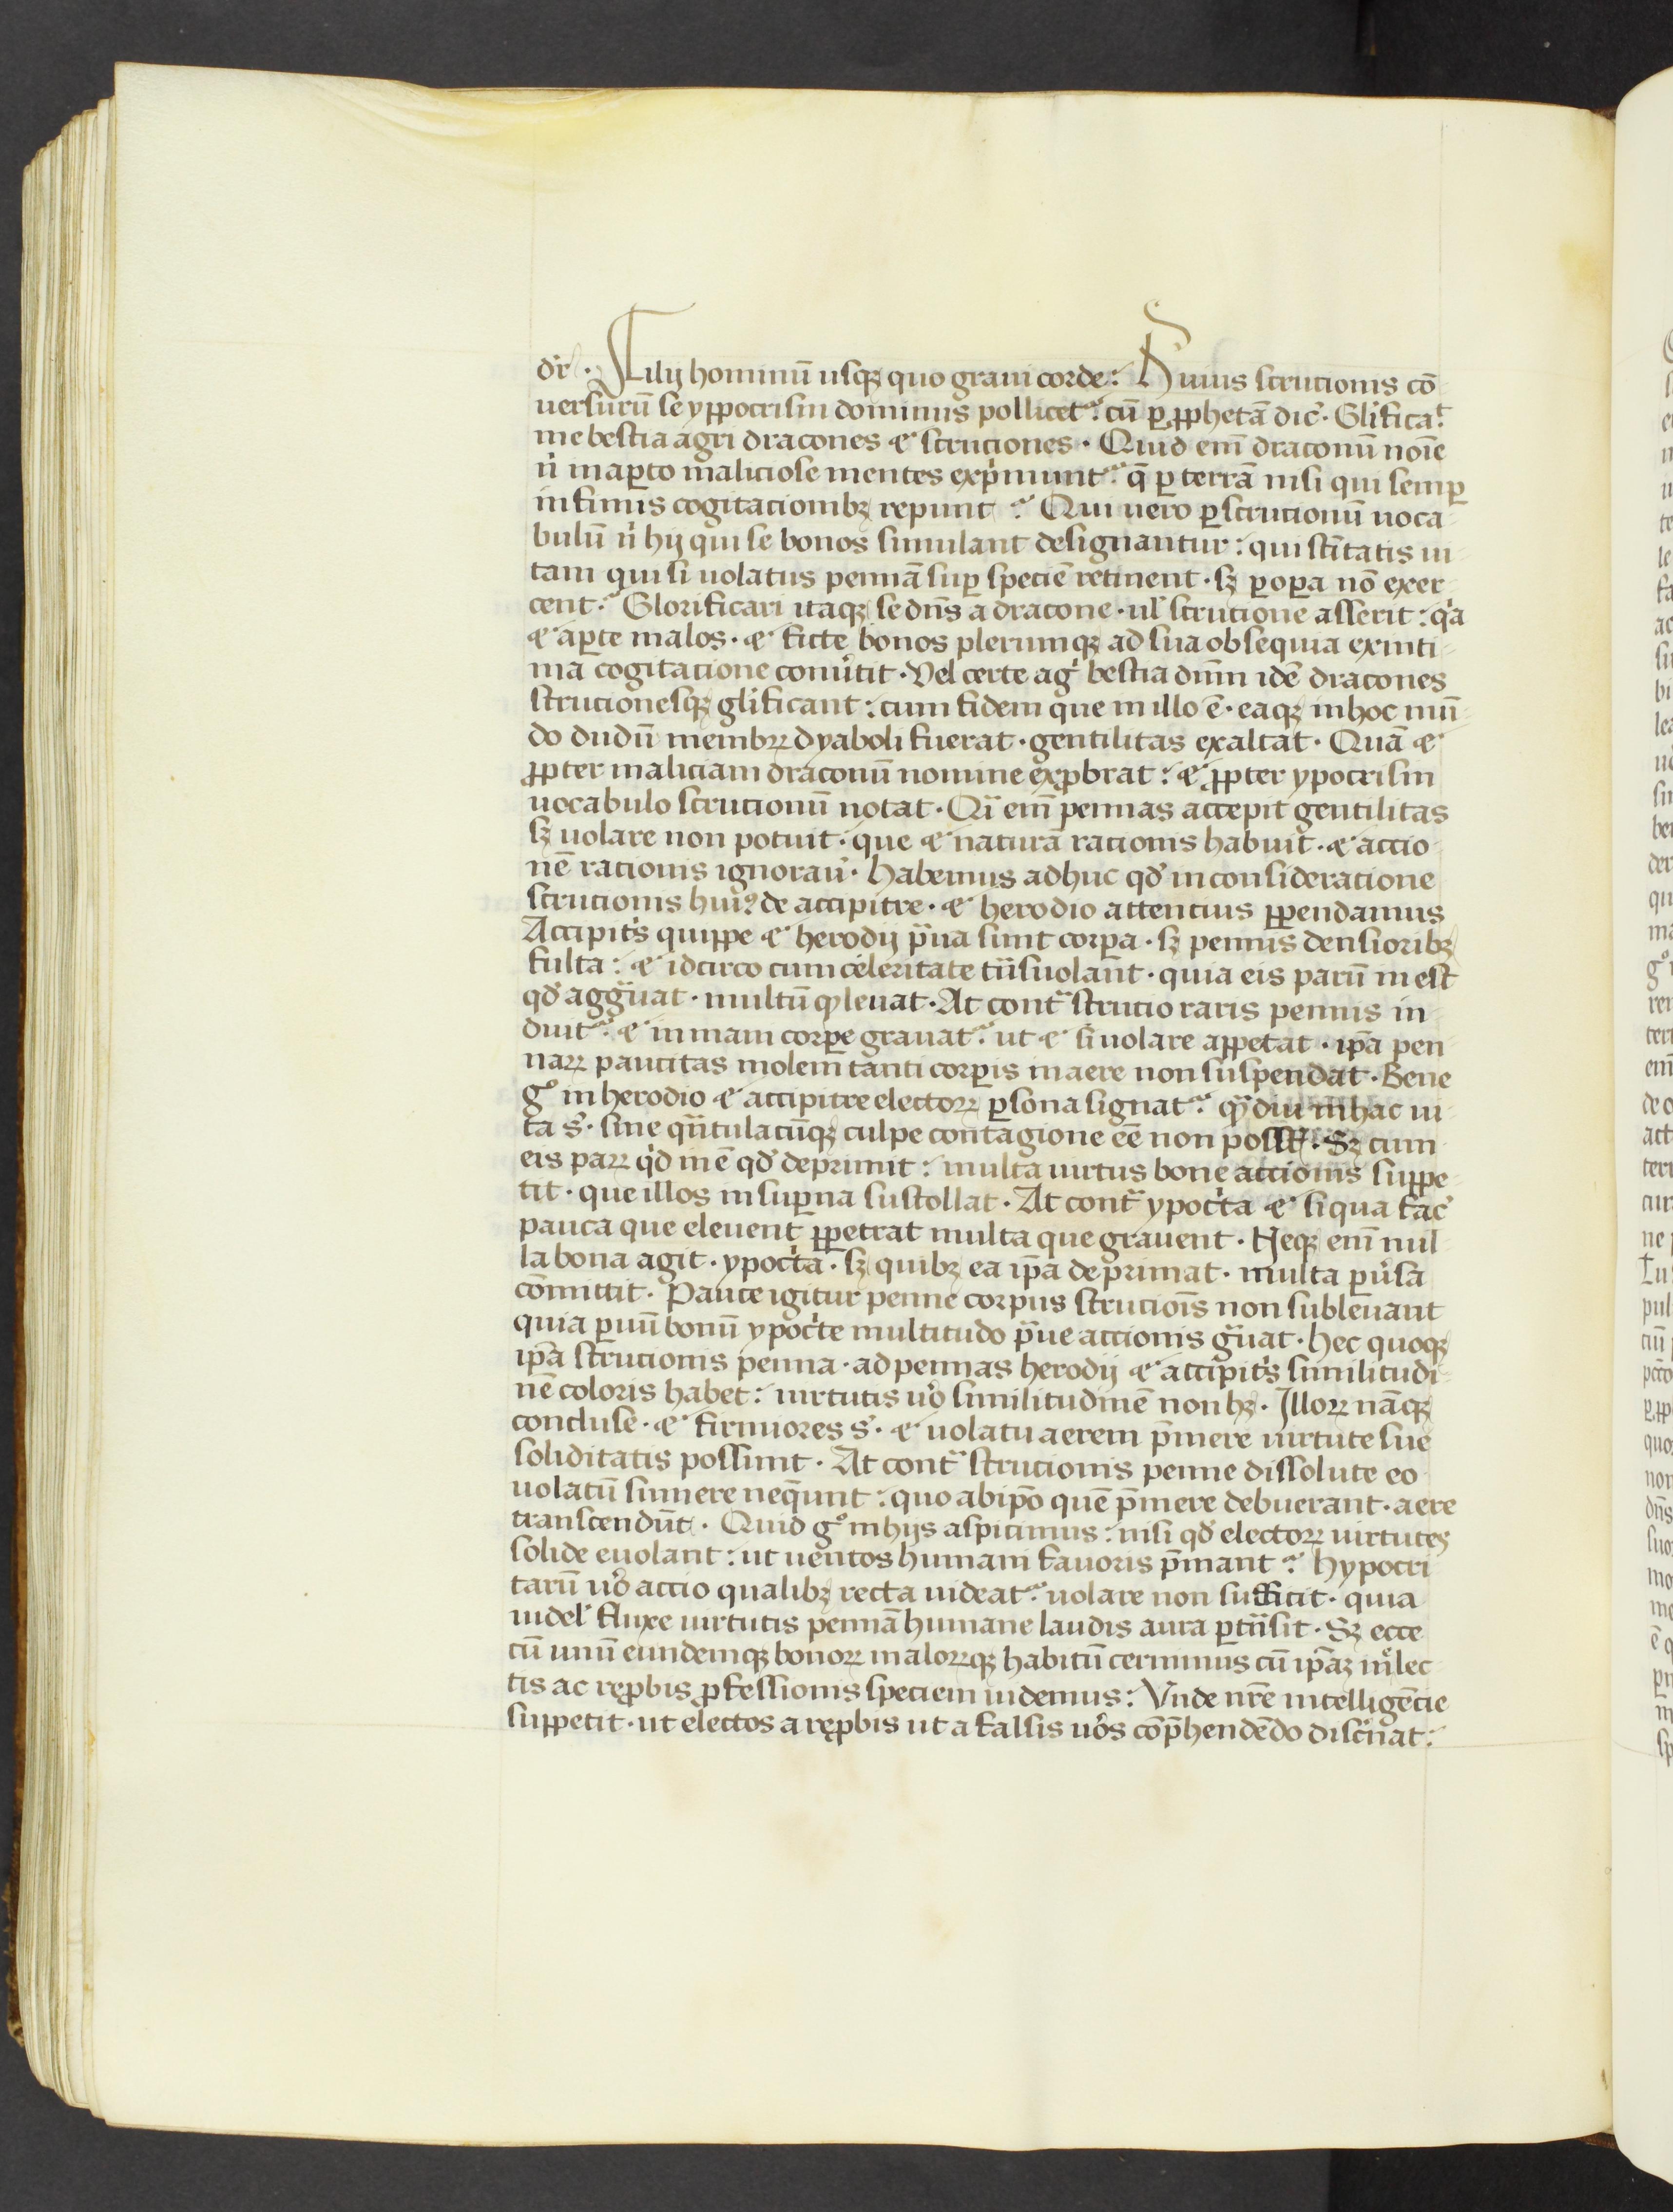 dr̄. Filij hominū usqꝫ quo graui corde: Huius strutionis cō
uersurū se yppocrisin dominus pollicet᷑: cū ꝑ ꝓphetā dic̄. Gl̓ificaᵗ
me bestia agri dracones ⁊ strutiones. Quid enī draconū noīe
ñ in aꝑto maliciose mentes exp̓munt᷑: q̄ ꝑ terrā nisi qui semꝑ
infimis cogitacionibꝫ repunt: Qui uero ꝑ strutionū uoca
bulū ñ hij qui se bonos simulant designantur: qui sc̄itatis ui
tam qui si uolatus pennā suꝑ speciē retinent. sꝫ ꝑ oꝑa nō exer
cent: Glorificari itaqꝫ se dn̄s a dracone. ul̓ strutione asserit: q̓a
⁊ aꝑte malos. ⁊ ficte bonos plerumqꝫ ad sua obsequia ex inti
ma cogitacione conu̓tit. Vel certe ag̓ bestia dn̄m idē dracones
strutionesqꝫ gl̓ificant: cum fidem que in illo ē. eaqꝫ in hoc mū
do dudū membꝝ dyaboli fuerat. gentilitas exaltat. Quā ⁊
ꝓpter maliciam draconū nomine exꝓbrat: ⁊ ꝓpter ypocrisin
uocabulo strutionū notat. Qͣi enī pennas accepit gentilitas
sꝫ uolare non potuit. que ⁊ naturā racionis habuit. ⁊ accio
nē racionis ignorau̓. Habemus adhuc qd̓ in consideracione
strutionis huiꝰ de accipitre. ⁊ herodio attencius ꝑpendamus
Accipit̓s quippe ⁊ herodij pͣua sunt corꝑa. sꝫ pennis densioribꝫ
fulta: ⁊ idcirco cum celeritate tͣnsuolant. quia eis parū inest
qd̓ aggͣuat. multū qͦ leuat. At contͣ strutio raris pennis in
duit᷑. ⁊ inmani corꝑe grauat᷑. ut ⁊ si uolare appetat. ip̄a pen
naꝝ paucitas molem tanti corꝑis in aere non suspendat. Bene
gͦ in herodio ⁊ accipitre electoꝝ ꝑsona signat᷑: qͣdiu in hac ui
ta s̄. sine qͣntulacūqꝫ culpe contagione eē non possūt. Sꝫ cum
eis paꝝ q̓d inē qd̓ deprimit: multa uirtus bone accionis suppe
tit. que illos in suꝑna sustollat. At contͣ ypoc̓ta ⁊ siqua fac̄
pauca que eleuent ꝑpetrat multa que grauent. Neqꝫ enī nul
la bona agit. ypoc̓ta. sꝫ quibꝫ ea ip̄a deprimat. multa ꝑu̓sa
cōmittit. Pauce igitur penne corpus strutiōis non subleuant
quia ꝑuū bonū ypoc̓te multitudo pͣue accionis gͣuat. Hec quoqꝫ
ip̄a strutionis penna. ad pennas herodij ⁊ accipit̓s similitudi
nē coloris habet: uirtutis uͦo similitudinē non hꝫ. Illoꝝ nāqꝫ
concluse. ⁊ firmiores s̄. ⁊ uolatu aerem p̄mere uirtute sue
soliditatis possunt. At contͣ strutionis penne dissolute eo
uolatū sumere neq̄unt: quo ab ip̄o quē p̄mere debuerant. aere
transcendūt. Quid gͦ in hijs aspicimus: nisi qd̓ electoꝝ uirtutes
solide euolant: ut uentos humani fauoris p̄mant: Hypocri
tarū uͦo accio qualibꝫ recta uideat᷑: uolare non sufficit. quia
uidel̓ fluxe uirtutis pennā humane laudis aura ꝑtͣnsit. Sꝫ ecce
cū unū eundemqꝫ bonoꝝ maloꝝqꝫ habitū cernimus cū ip̄aꝫ in elec
tis ac reꝓbis ꝓfessionis speciem uidemus: Vnde nr̄e intelligēcie
suppetit. ut electos a reꝓbis ut a falsis uͦos cōp̄hendēdo disc̓nat: